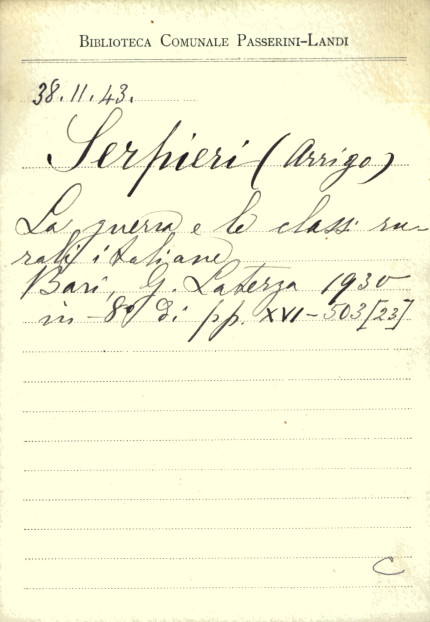 BIBLIOTECA COMUNALE PASSERINI-LANDI
38.11.43.
Serpieri (Arrigo)
La guerra e le classi ru-
rali italiane
Bari, G. Laterza 1930
in-8º di pp. XVI-503[23]
C